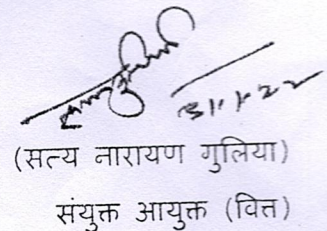 31.1.22
(सत्य नारायण गुलिया)
संयुक्त आयुक्त (वित्त)